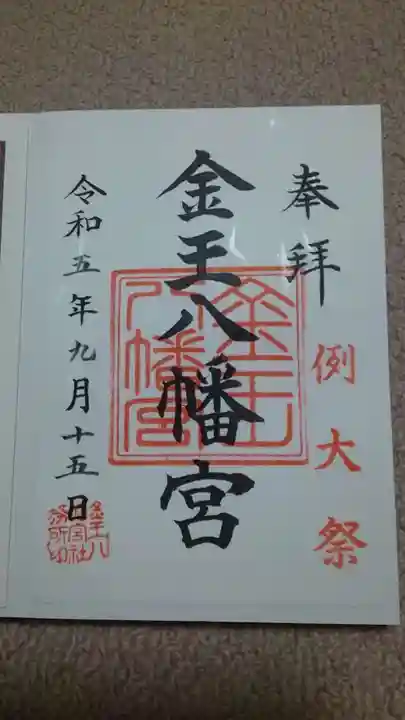 奉拝
例大祭
金王八幡宮
金王八幡宮
令和五年九月十五日
金王八幡宮社務所印